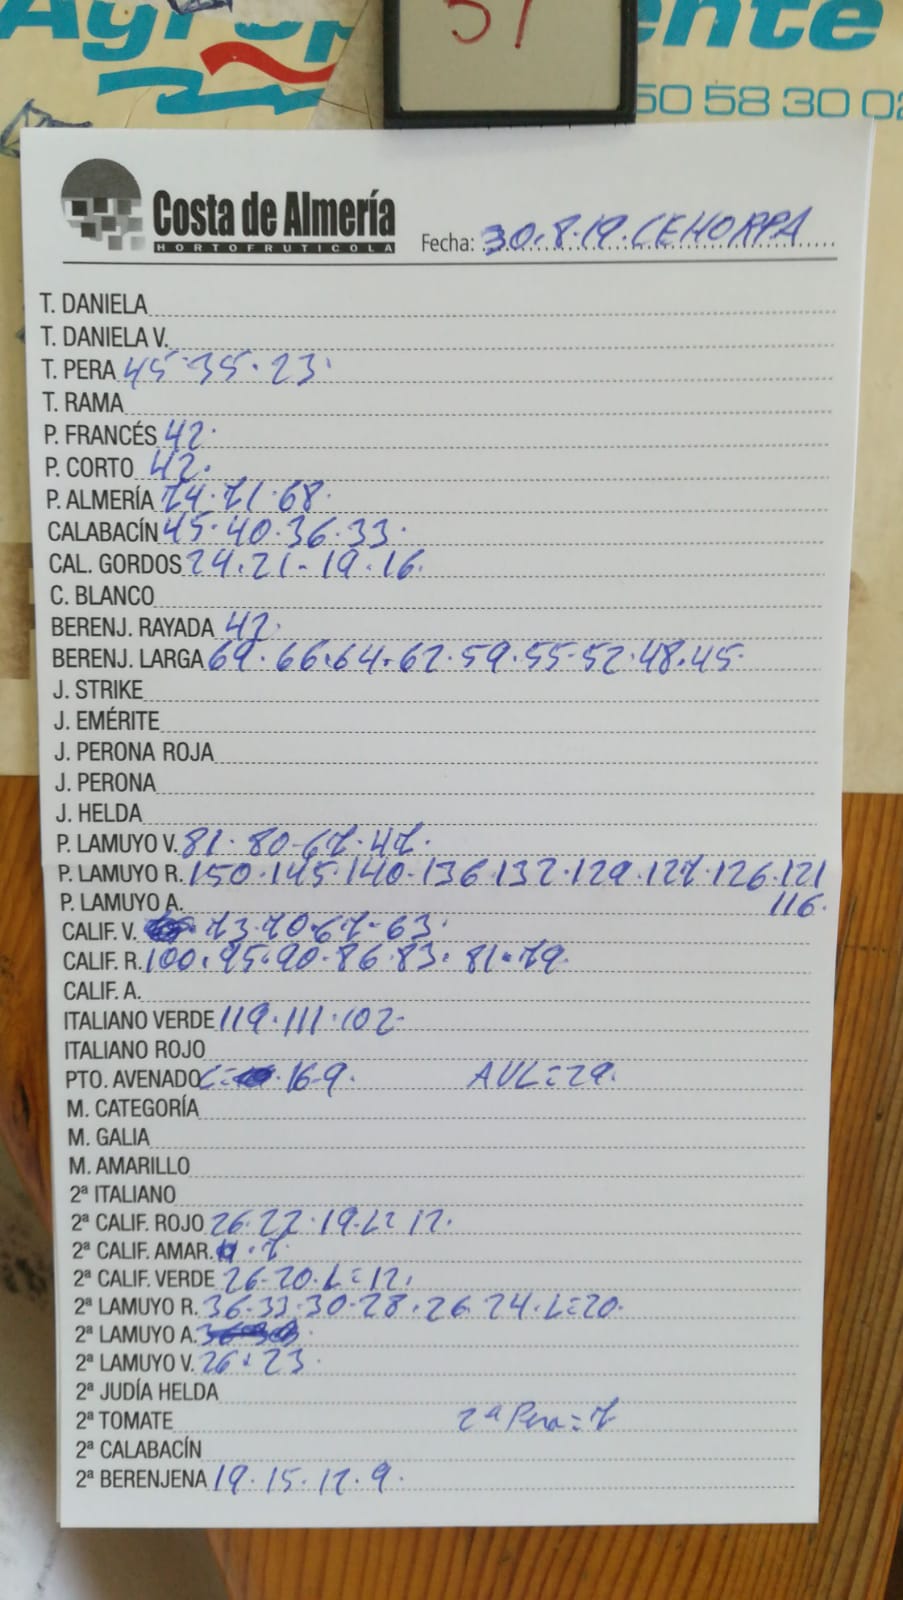 51
50 58 30 02
Costa de Almería
HORTOFRUTICOLA
Fecha: 30.8.19. CEHORPA
T. DANIELA
T. DANIELA V.
T. PERA 45.35.23.
T. RAMA
P. FRANCÉS 42.
P. CORTO 42.
P. ALMERÍA 74.71.68.
CALABACÍN 45.40.36.33.
CAL. GORDOS 24.21-19.16.
C. BLANCO
BERENJ. RAYADA 42.
BERENJ. LARGA 69.66.64.62.59.55-52.48.45.
J. STRIKE
J. EMÉRITE
J. PERONA ROJA
J. PERONA
J. HELDA
P. LAMUYO V. 81.80-67.47.
P. LAMUYO R. 150.145.140.136.132.129.127.126.121
P. LAMUYO A. 116.
CALIF. V. 73.70.67-63.
CALIF. R. 100.95.90.86.83.81.79.
CALIF. A.
ITALIANO VERDE 119.111.102-
ITALIANO ROJO
PTO. AVENADO C= 16-9. AVL=29.
M. CATEGORÍA
M. GALIA
M. AMARILLO
2ª ITALIANO
2ª CALIF. ROJO 26.22.19.L=12.
2ª CALIF. AMAR. 7.
2ª CALIF. VERDE 26-20.L=12.
2ª LAMUYO R. 36.33.30-28.26.24.L=20.
2ª LAMUYO A.
2ª LAMUYO V. 26.23.
2ª JUDÍA HELDA
2ª TOMATE 2ª Pera=7
2ª CALABACÍN
2ª BERENJENA 19.15.12.9.